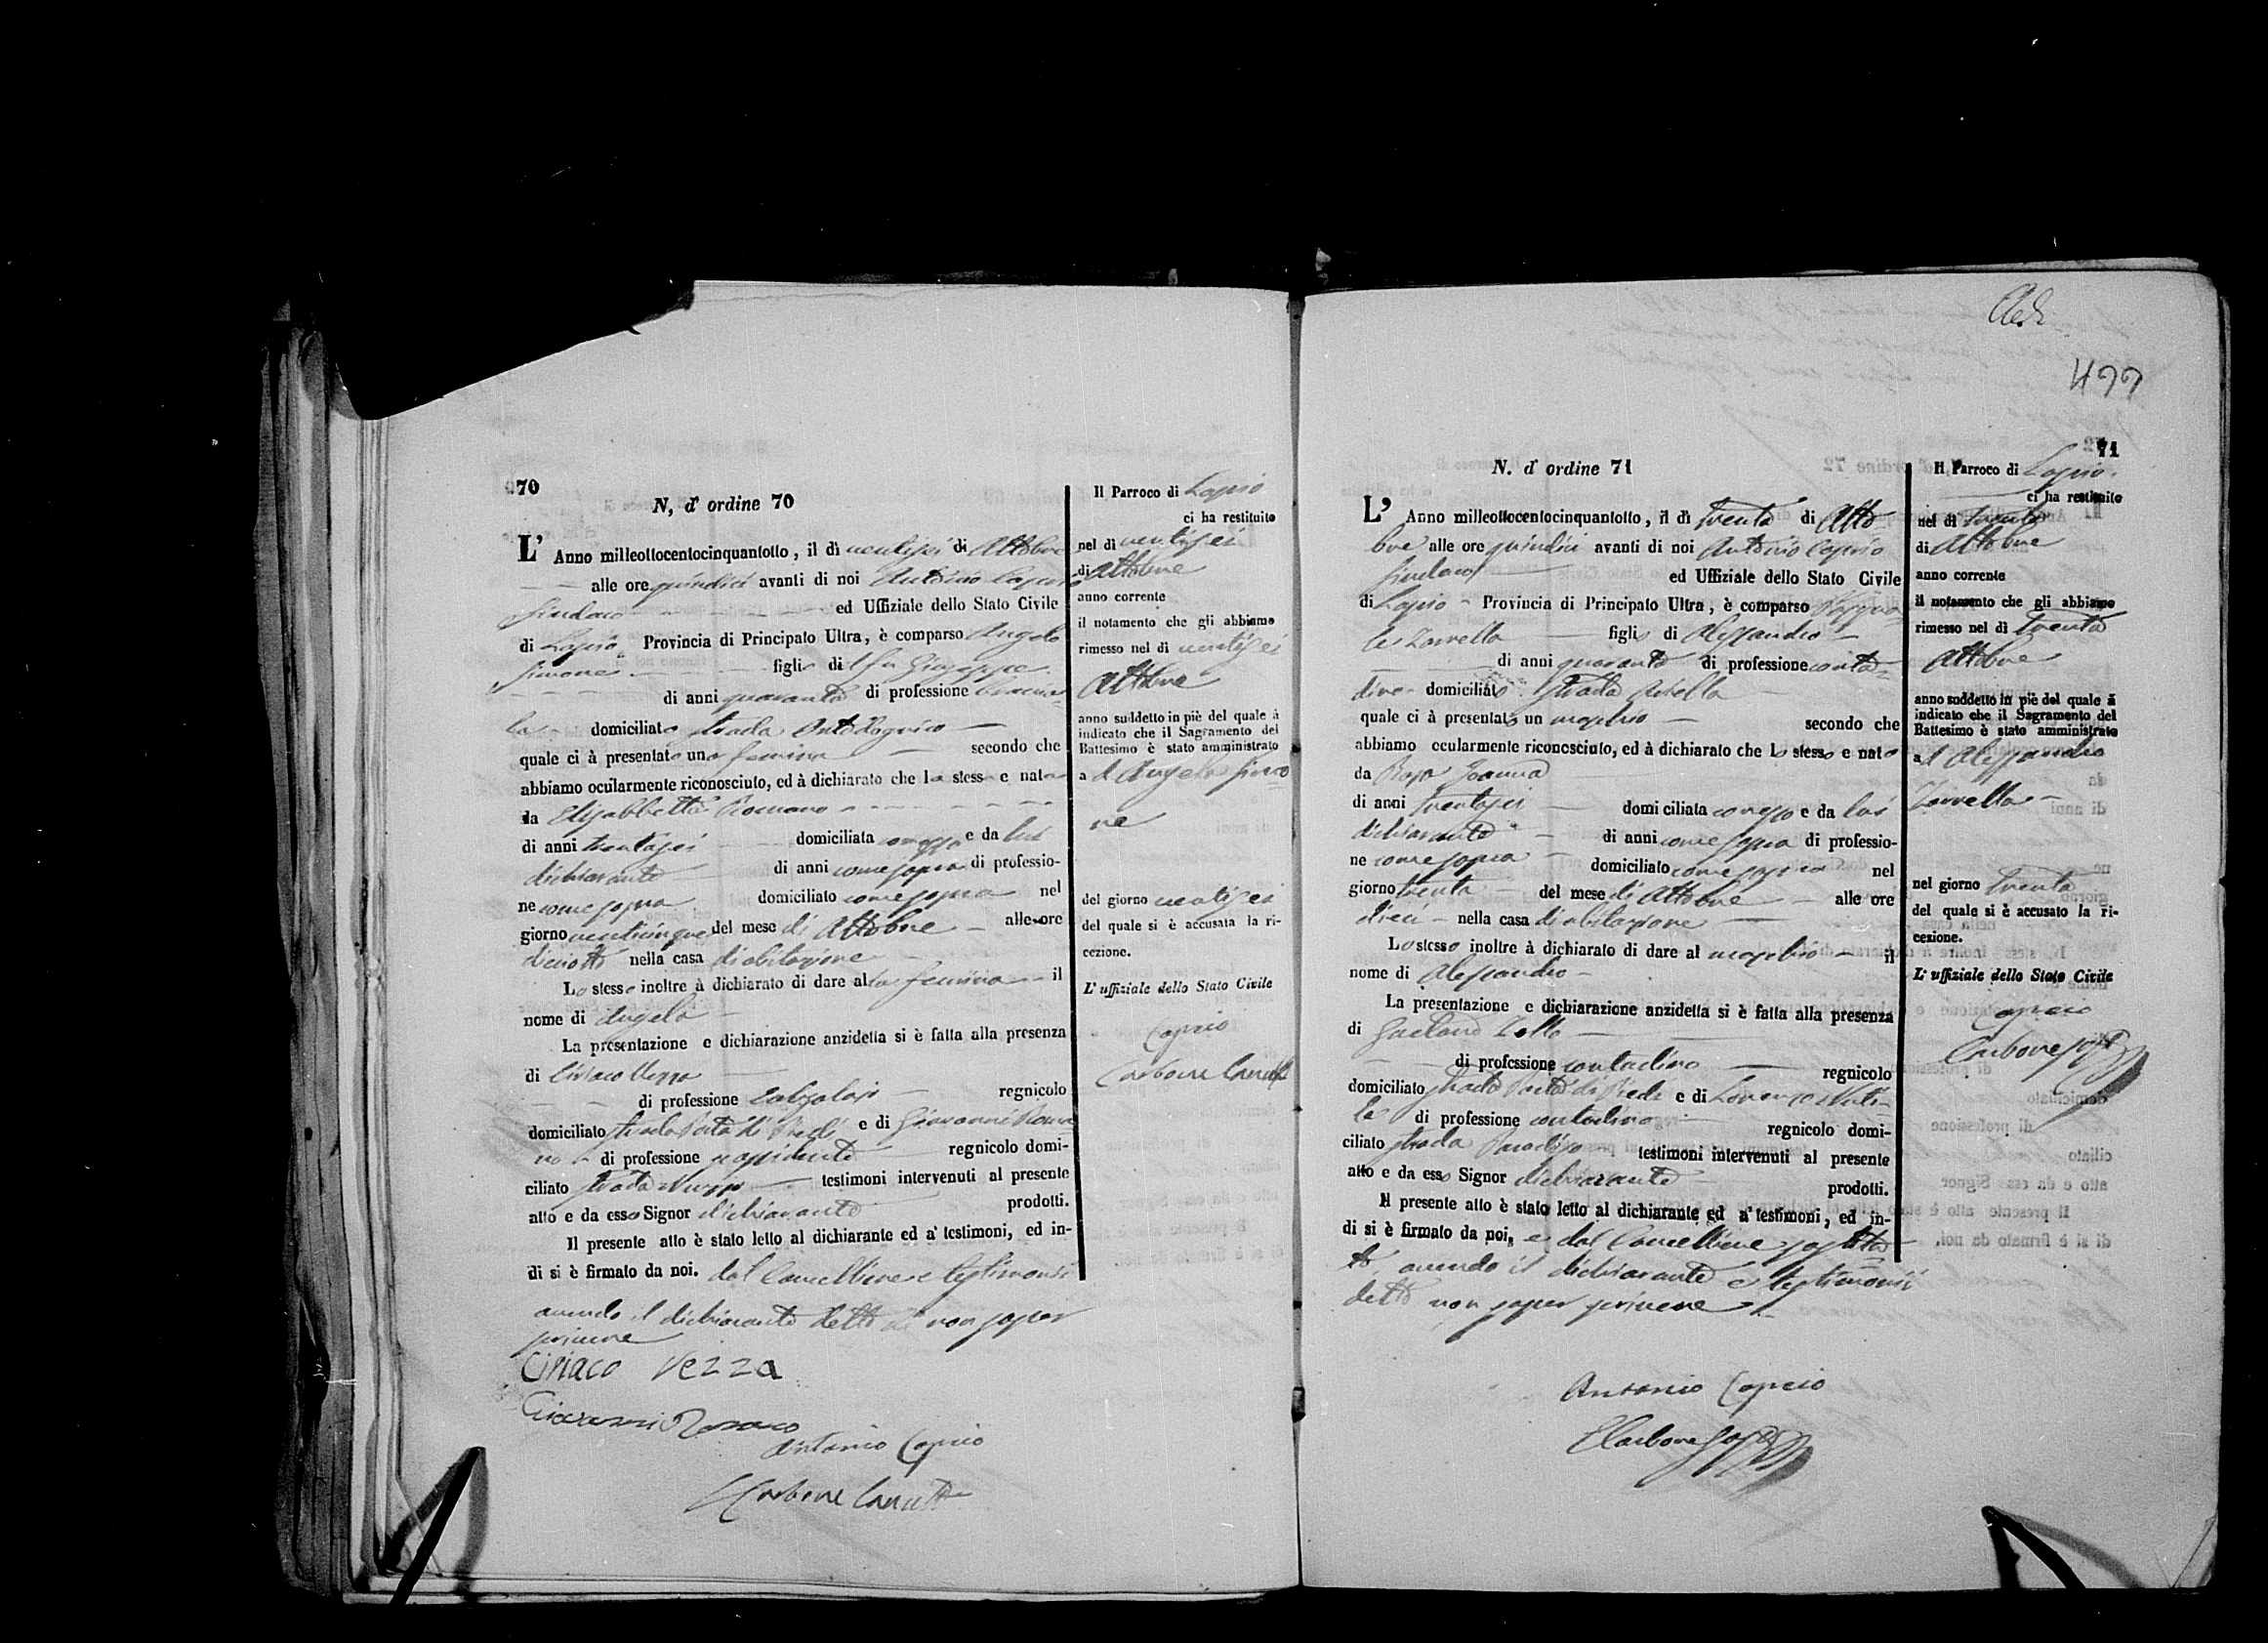 70
N, d' ordine 70
L' Anno milleottocentocinquantotto, il dì ventisei di Ottobre
alle ore quindici avanti di noi Antonio Caprio
Sindaco ed Uffiziale dello Stato Civile
di Lapio Provincia di Principato Ultra, è comparso Angelo
Simone figlio di fu Giuseppe
di anni quaranta di professione braccia-
le domiciliato strada
quale ci à presentato una femina secondo che
abbiamo ocularmente riconosciuto, ed à dichiarato che la stessa e nata
da Elisabbetta Romano
di anni trentasei domiciliata con esso e da lui
dichiarante di anni come sopra di professio-
ne come sopra domiciliato come sopra nel
giorno venticinque del mese di Ottobre alle ore
diciotto nella casa di abitazione
Lo stesso inoltre à dichiarato di dare alla femina il
nome di Angela
La presentazione e dichiarazione anzidetta si è fatta alla presenza
di Ciriaco Vezza
di professione Calzolajo regnicolo
domiciliato strada Porta di Piedi e di Giovanni Roma
no di professione possidente regnicolo domi-
ciliato strada testimoni intervenuti al presente
atto e da esso Signor dichiarante prodotti.
Il presente atto è stato letto al dichiarante ed a' testimoni, ed in-
di si è firmato da noi. dal Cancelliere e testimonii
avendo il dichiarante detto di non saper
scrivere
Ciriaco Vezza
Giovanni Romano
Antonio Caprio
Carbone
Il Parroco di Lapio
ci ha restituito
nel dì ventisei
di Ottobre
anno corrente
il notamento che gli abbiamo
rimesso nel dì ventisei
Ottobre
anno suddetto in piè del quale à
indicato che il Sagramento del
Battesimo è stato amministrato
a d Angela Simo
ne
del giorno ventisei
del quale si è accusata la ri-
cezione.
L' uffiziale dello Stato Civile
Caprio
Carbone
Ale.
499
71
N. d' ordine 71
L' Anno milleottocentocinquantotto, il dì trenta di Otto-
bre alle ore quindici avanti di noi Antonio Caprio
Sindaco ed Uffiziale dello Stato Civile
di Lapio Provincia di Principato Ultra, è comparso
le Zarrella figlio di Alessandro
di anni quaranta di professione conta-
dino domiciliato strada
quale ci à presentato un maschio secondo che
abbiamo ocularmente riconosciuto, ed à dichiarato che lo stesso e nato
da Rosa Joanna
di anni trentasei domiciliata con esso e da lui
dichiarante di anni come sopra di professio-
ne come sopra domiciliato come sopra nel
giorno trenta del mese di Ottobre alle ore
dieci nella casa di abitazione
Lo stesso inoltre à dichiarato di dare al maschio il
nome di Alessandro
La presentazione e dichiarazione anzidetta si è fatta alla presenza
di Gaetano Zollo
di professione contadino regnicolo
domiciliato strada Porta di Piedi e di Lorenzo
di professione contadino regnicolo domi-
ciliato strada Paradiso testimoni intervenuti al presente
atto e da esso Signor dichiarante prodotti.
Il presente atto è stato letto al dichiarante ed a' testimoni, ed in-
di si è firmato da noi, e dal Cancelliere sostitu-
to, avendo il dichiarante e testimonii
detto non saper scrivere
Antonio Caprio
Carbone
Il Parroco di Lapio
ci ha restituito
nel dì trenta
di Ottobre
anno corrente
il notamento che gli abbiamo
rimesso nel dì trenta
Ottobre
anno suddetto in piè del quale à
indicato che il Sagramento del
Battesimo è stato amministrato
a d Alessandro
Zarrella
nel giorno trenta
del quale si è accusato la ri-
cezione.
L' uffiziale dello Stato Civile
Caprio
Carbone